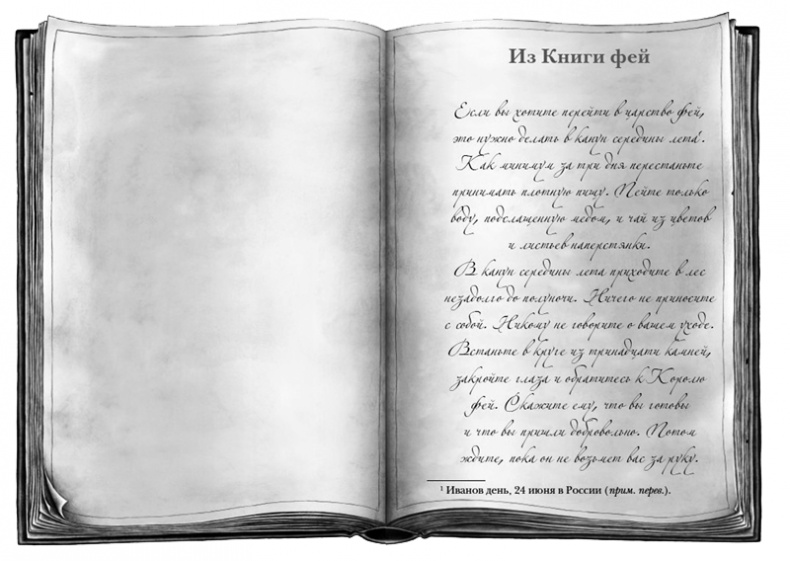 Из Книги фей
Если вы хотите перейти в царство фей,
это нужно делать в канун середины лета¹.
Как минимум за три дня перестаньте
принимать плотную пищу. Пейте только
воду, подслащенную медом, и чай из цветов
и листьев наперстянки.
В канун середины лета приходите в лес
незадолго до полуночи. Ничего не приносите
с собой. Никому не говорите о вашем уходе.
Встаньте в круге из тринадцати камней,
закройте глаза и обратитесь к Королю
фей. Скажите ему, что вы готовы
и что вы пришли добровольно. Потом
ждите, пока он не возьмет вас за руку.
¹ Иванов день, 24 июня в России (прим. перев.).